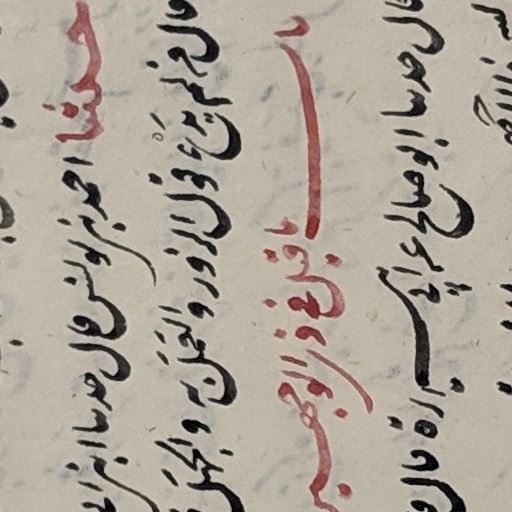 حدثنا احمد بن يونس قال حدثنا ابن ابي
قال من لم يدع قول الزور والعمل به والجهل
باب ما قيل في ذي الوجهين
قال حدثنا ابو صالح عن ابي هريرة قال